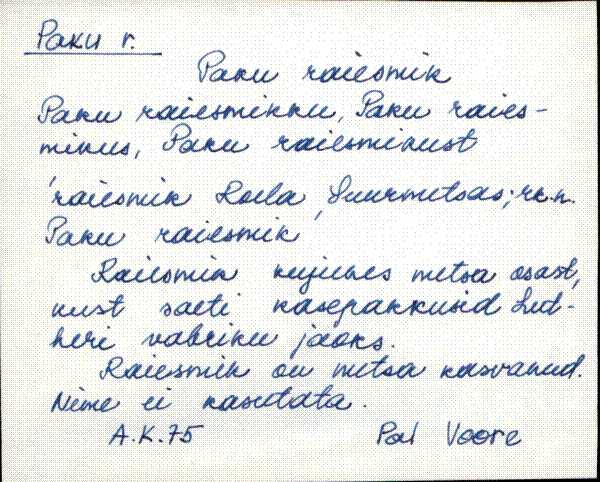 Paku r.
Paku raiesmik
Paku raiesmikku, Paku raies-
mikus, Paku raiesmikust
'raiesmik Roela Suurmetsas; rk. n.
Paku raiesmik
Raiesmik kujunes metsa osast,
kust saeti kasepakkusid Lut-
heri vabriku jaoks.
Raiesmik on metsa kasvanud.
Nime ei kasutata.
A.K. 75 Pal Voore